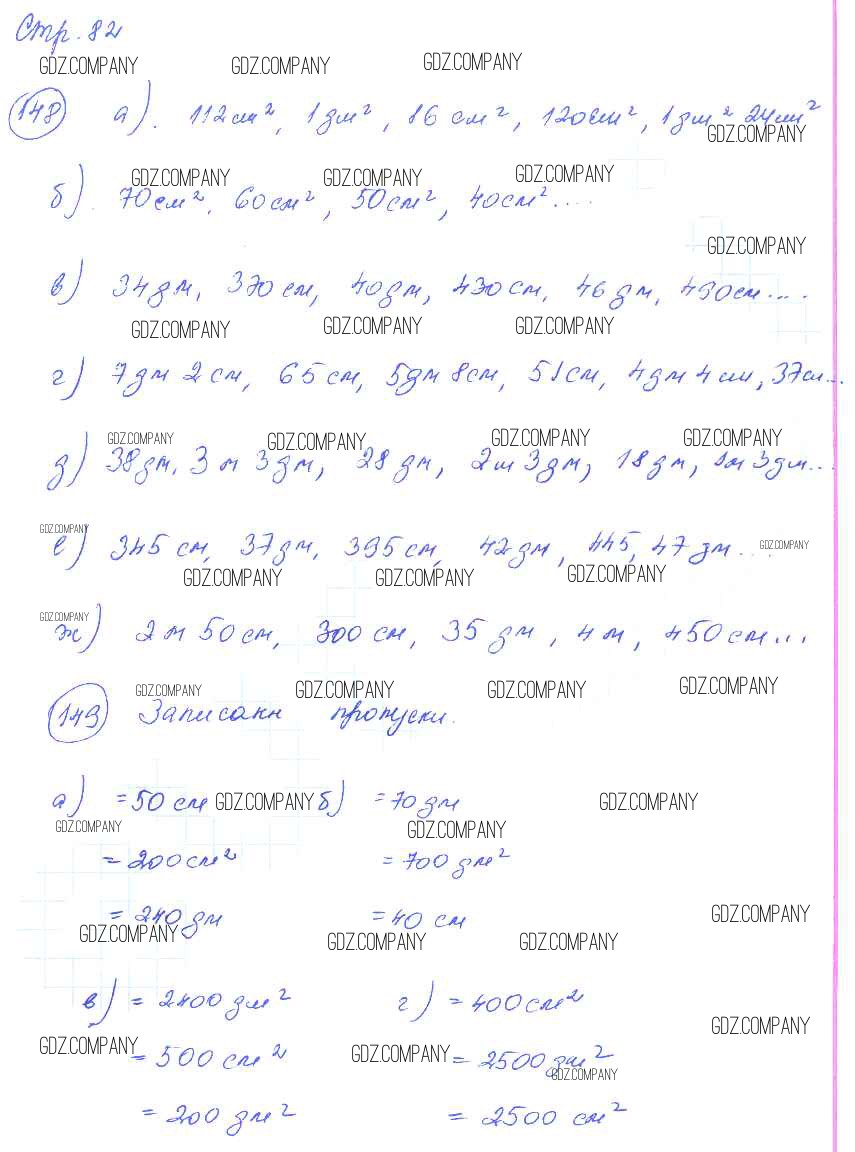 Стр. 82
GDZ.COMPANY GDZ.COMPANY GDZ.COMPANY
148 а). 112 см², 1 дм², 16 см², 120 см², 1 дм² 24 см²
GDZ.COMPANY
GDZ.COMPANY GDZ.COMPANY GDZ.COMPANY
б). 70 см², 60 см², 50 см², 40 см²....
GDZ.COMPANY
в) 34 дм, 370 см, 40 дм, 430 см, 46 дм, 490 см....
GDZ.COMPANY GDZ.COMPANY GDZ.COMPANY
г) 7 дм 2 см, 65 см, 5 дм 8 см, 51 см, 4 дм 4 см, 37 см...
GDZ.COMPANY GDZ.COMPANY GDZ.COMPANY GDZ.COMPANY
д) 38 дм, 3 м 3 дм, 28 дм, 2 м 3 дм, 18 дм, 1 м 3 дм...
GDZ.COMPANY
е) 345 см, 37 дм, 395 см, 42 дм, 445, 47 дм.... GDZ.COMPANY
GDZ.COMPANY GDZ.COMPANY GDZ.COMPANY
GDZ.COMPANY
ж) 2 м 50 см, 300 см, 35 дм, 4 м, 450 см...
GDZ.COMPANY GDZ.COMPANY GDZ.COMPANY GDZ.COMPANY
149 Записанн пропуски.
а) = 50 см GDZ.COMPANY б) = 70 дм GDZ.COMPANY
GDZ.COMPANY GDZ.COMPANY
= 200 см² = 700 дм²
= 240 дм = 40 см GDZ.COMPANY
GDZ.COMPANY GDZ.COMPANY GDZ.COMPANY
в) = 2400 дм² г) = 400 см²
GDZ.COMPANY
GDZ.COMPANY = 500 см² GDZ.COMPANY = 2500 дм²
GDZ.COMPANY
= 200 дм² = 2500 см²